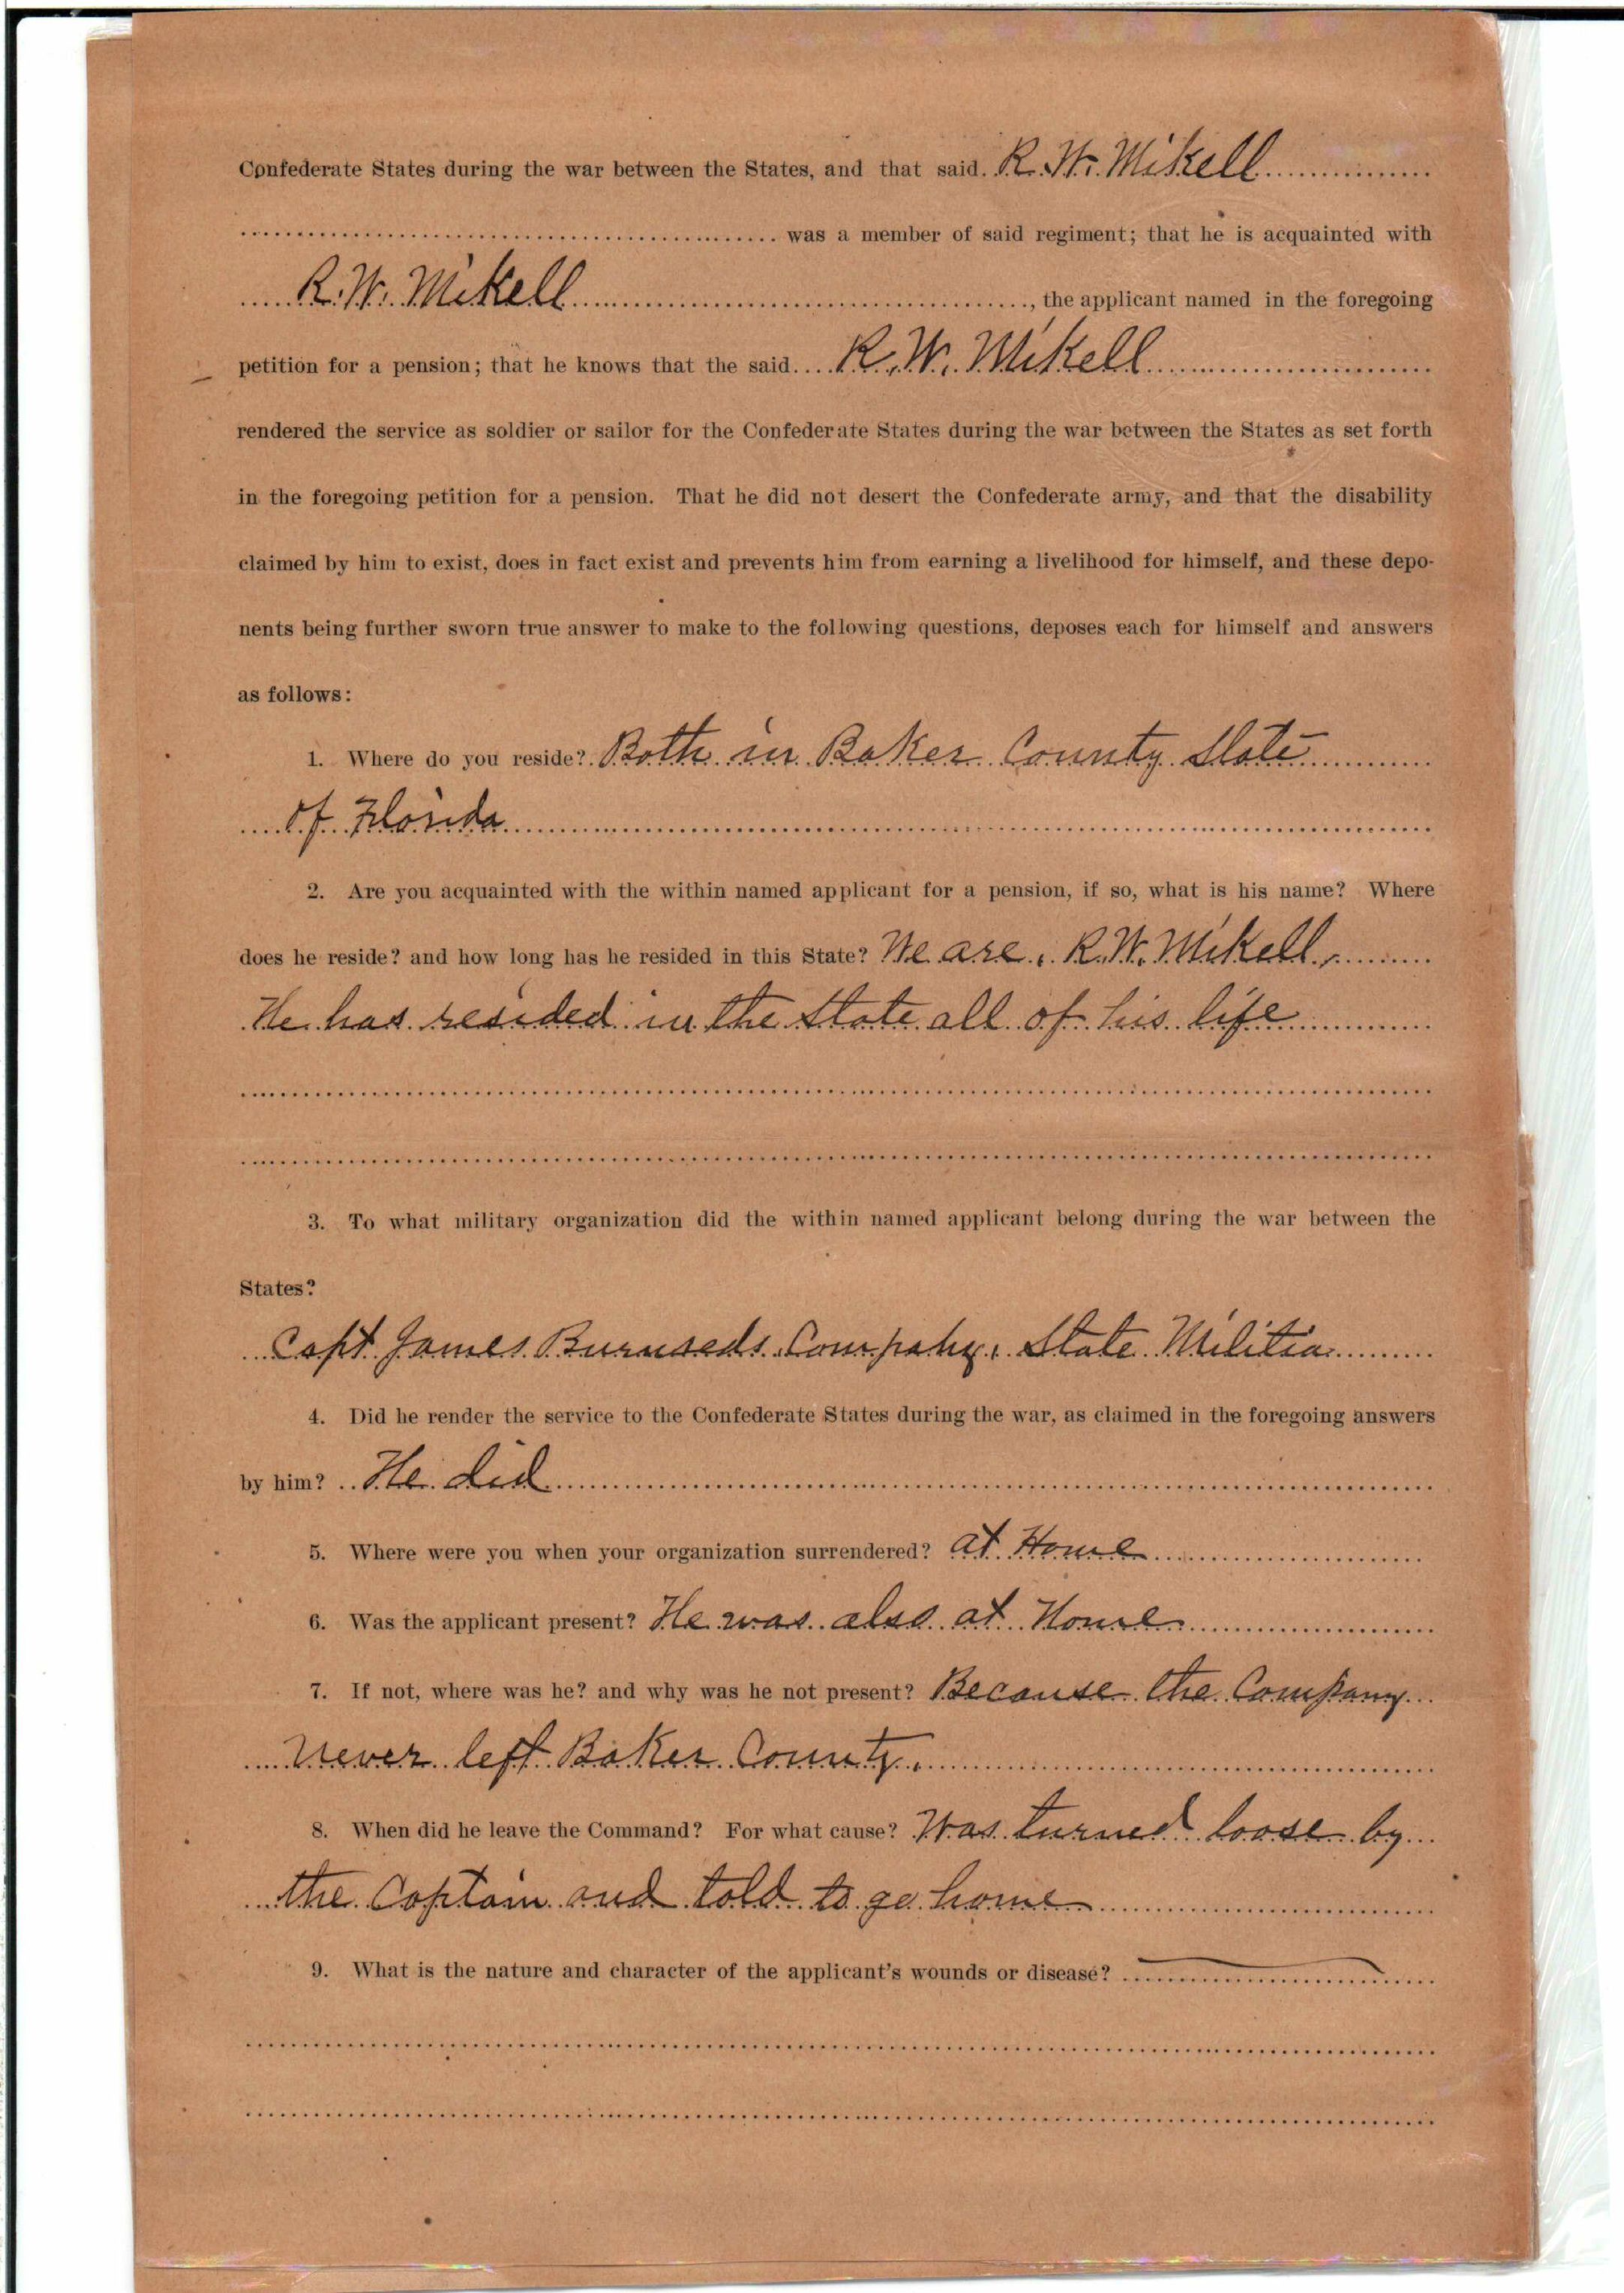 Confederate States during the war between the States, and that said R. W. Mikell
was a member of said regiment; that he is acquainted with
R. W. Mikell, the applicant named in the foregoing
petition for a pension; that he knows that the said R. W. Mikell
rendered the service as soldier or sailor for the Confederate States during the war between the States as set forth
in the foregoing petition for a pension. That he did not desert the Confederate army, and that the disability
claimed by him to exist, does in fact exist and prevents him from earning a livelihood for himself, and these depo-
nents being further sworn true answer to make to the following questions, deposes each for himself and answers
as follows:
1. Where do you reside? Both in Baker County State
of Florida
2. Are you acquainted with the within named applicant for a pension, if so, what is his name? Where
does he reside? and how long has he resided in this State? We are, R. W. Mikell,
He has resided in the State all of his life
3. To what military organization did the within named applicant belong during the war between the
States?
Capt James Burnseds Company, State Militia
4. Did he render the service to the Confederate States during the war, as claimed in the foregoing answers
by him? He did
5. Where were you when your organization surrendered? at Home
6. Was the applicant present? He was also at Home
7. If not, where was he? and why was he not present? Because the Company
never left Baker County.
8. When did he leave the Command? For what cause? Was turned loose by
the Captain and told to go home
9. What is the nature and character of the applicant's wounds or disease?